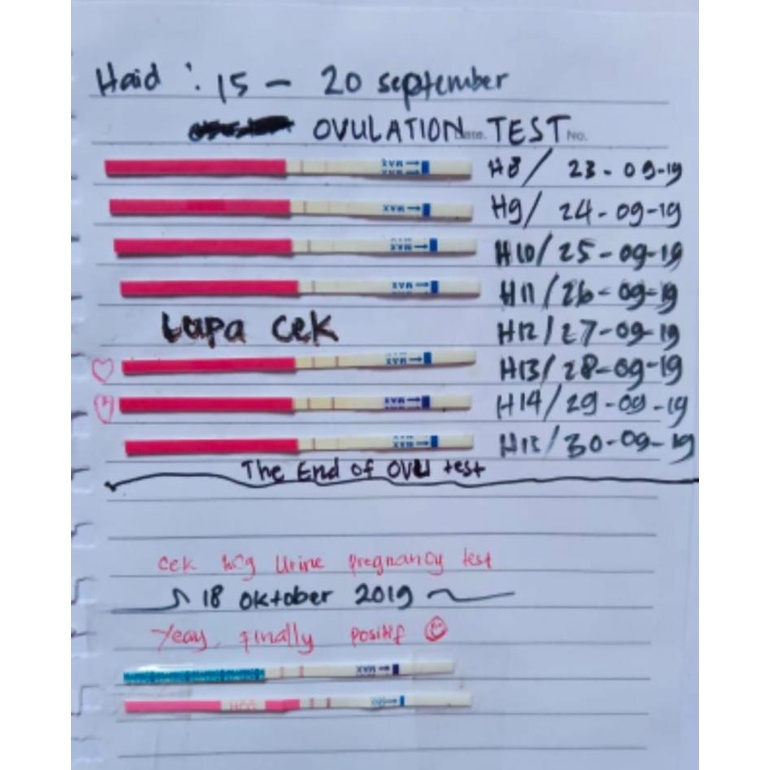 Haid : 15 - 20 september
OVULATION TEST
Date. No.
H8/ 23-09-19
H9/ 24-09-19
H10/25-09-19
H11/26-09-19
Lupa cek H12/27-09-19
H13/28-09-19
H14/29-09-19
H15/30-09-19
The End of OVU test
cek hcg Urine pregnancy test
18 oktober 2019
Yeay, Finally positif
MAX
HCG